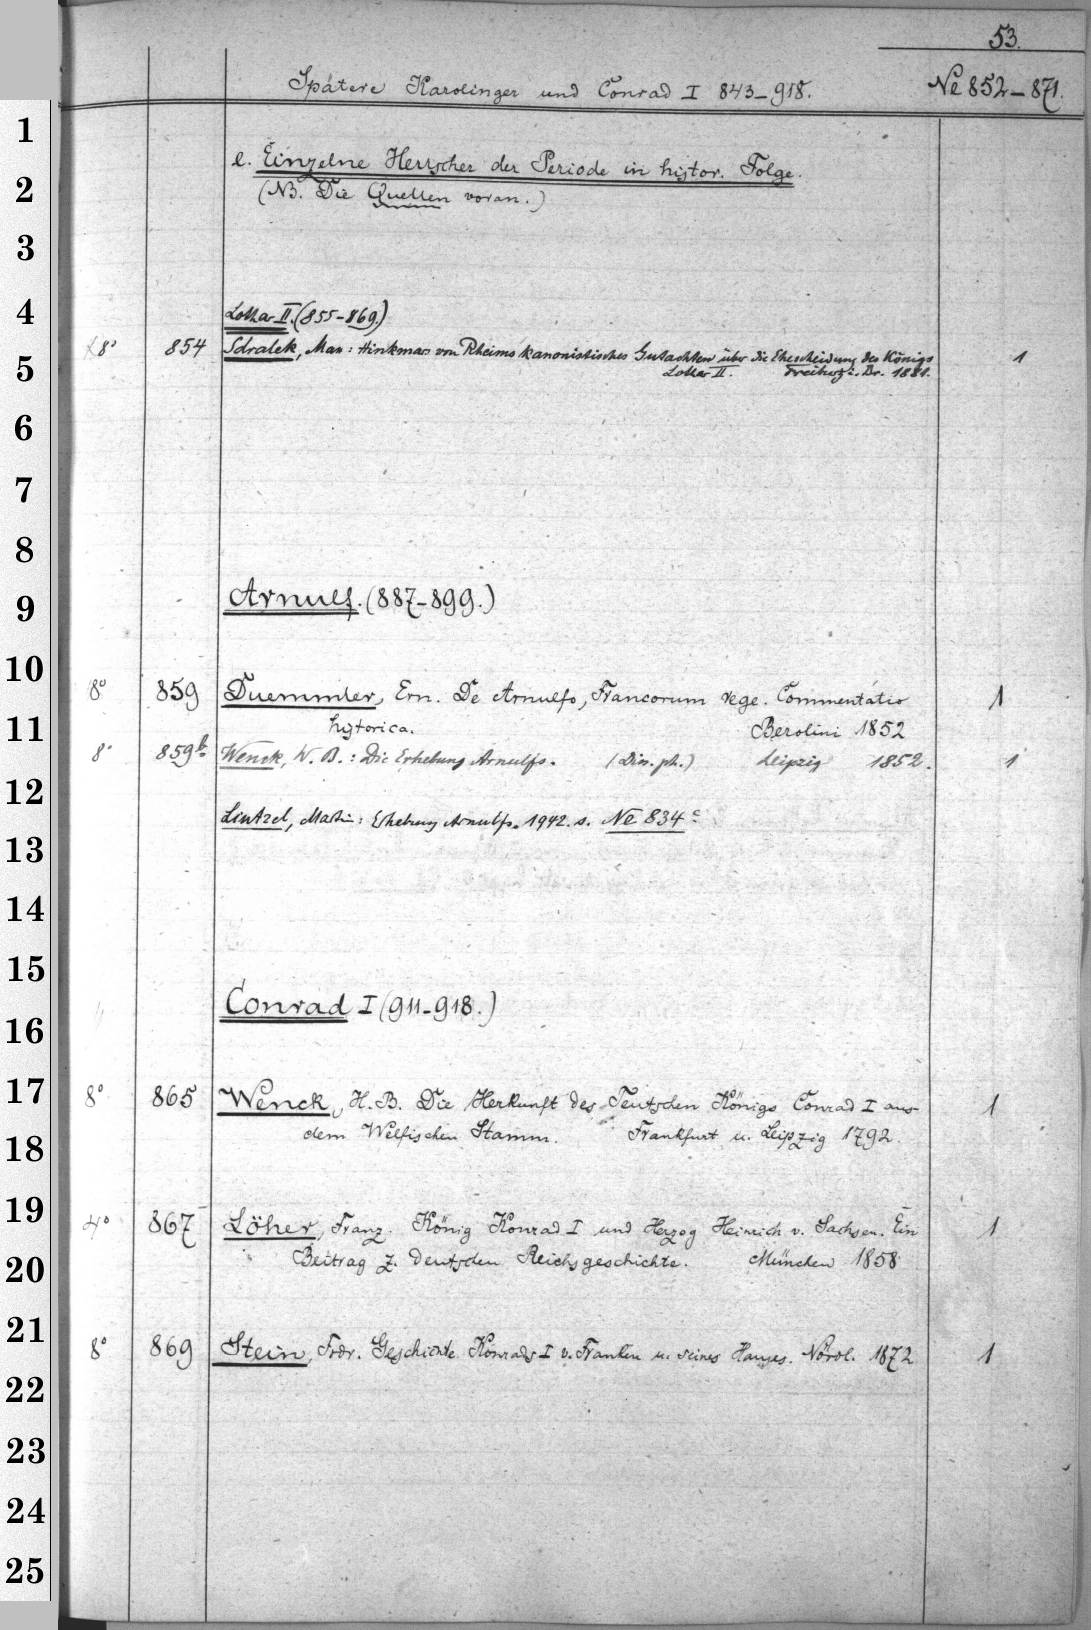 53.
Spätere Karolinger und Conrad I 843-918. Ne 852-871.
1
e. Einzelne Herrscher der Periode in histor. Folge.
2
(NB. Die Quellen voran.)
3
4
Lothar II. (855-869.)
8° 854 Sdralek, Max: Hinkmars von Rheims kanonistisches Gutachten über die Ehescheidung des Königs 1
5
Lothar II. Freiburg i. Br. 1881.
6
7
8
Arnulf. (887-899.)
9
10
8° 859 Duemmler, Ern. De Arnulfo, Francorum rege. Commentatio 1
11
historica. Berolini 1852
8° 859b Wenck, W. B.: Die Erhebung Arnulfs. (Diss. ph.) Leipzig 1852. 1
12
Lintzel, Martin: Erhebung Arnulfs. 1942. s. Ne 834c
13
14
15
Conrad I (911-918.)
16
17
8° 865 Wenck, H. B. Die Herkunft des Teutschen Königs Conrad I aus 1
dem Welfischen Stamm. Frankfurt u. Leipzig 1792.
18
19
4° 867 Löher, Franz. König Konrad I und Herzog Heinrich v. Sachsen. Ein 1
Beitrag z. deutschen Reichsgeschichte. München 1858
20
21
8° 869 Stein, Frdr. Geschichte Konrads I v. Franken u. seines Hauses. Nördl. 1872 1
22
23
24
25